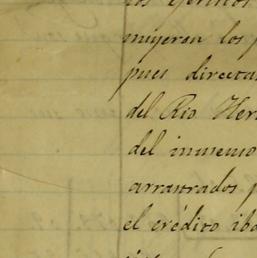 los ejércitos
muyeran los
pues directa
del Rio Her
del inmenso
arrastrados p
el crédito iba